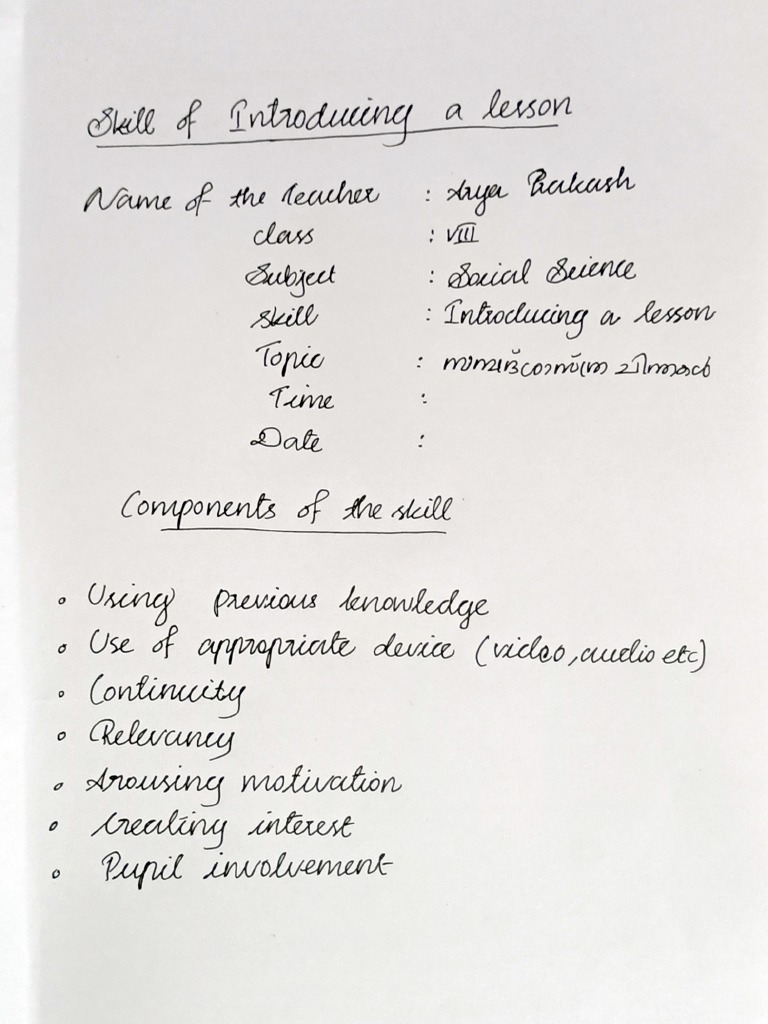 Skill of Introducing a lesson
Name of the teacher : Arya Prakash
class : VIII
Subject : Social Science
skill : Introducing a lesson
Topic : സാമ്പത്തിക ചിന്തകൾ
Time :
Date :
Components of the skill
• Using previous knowledge
• Use of appropriate device (video, audio etc)
• Continuity
• Relevancy
• Arousing motivation
• Creating interest
• Pupil involvement